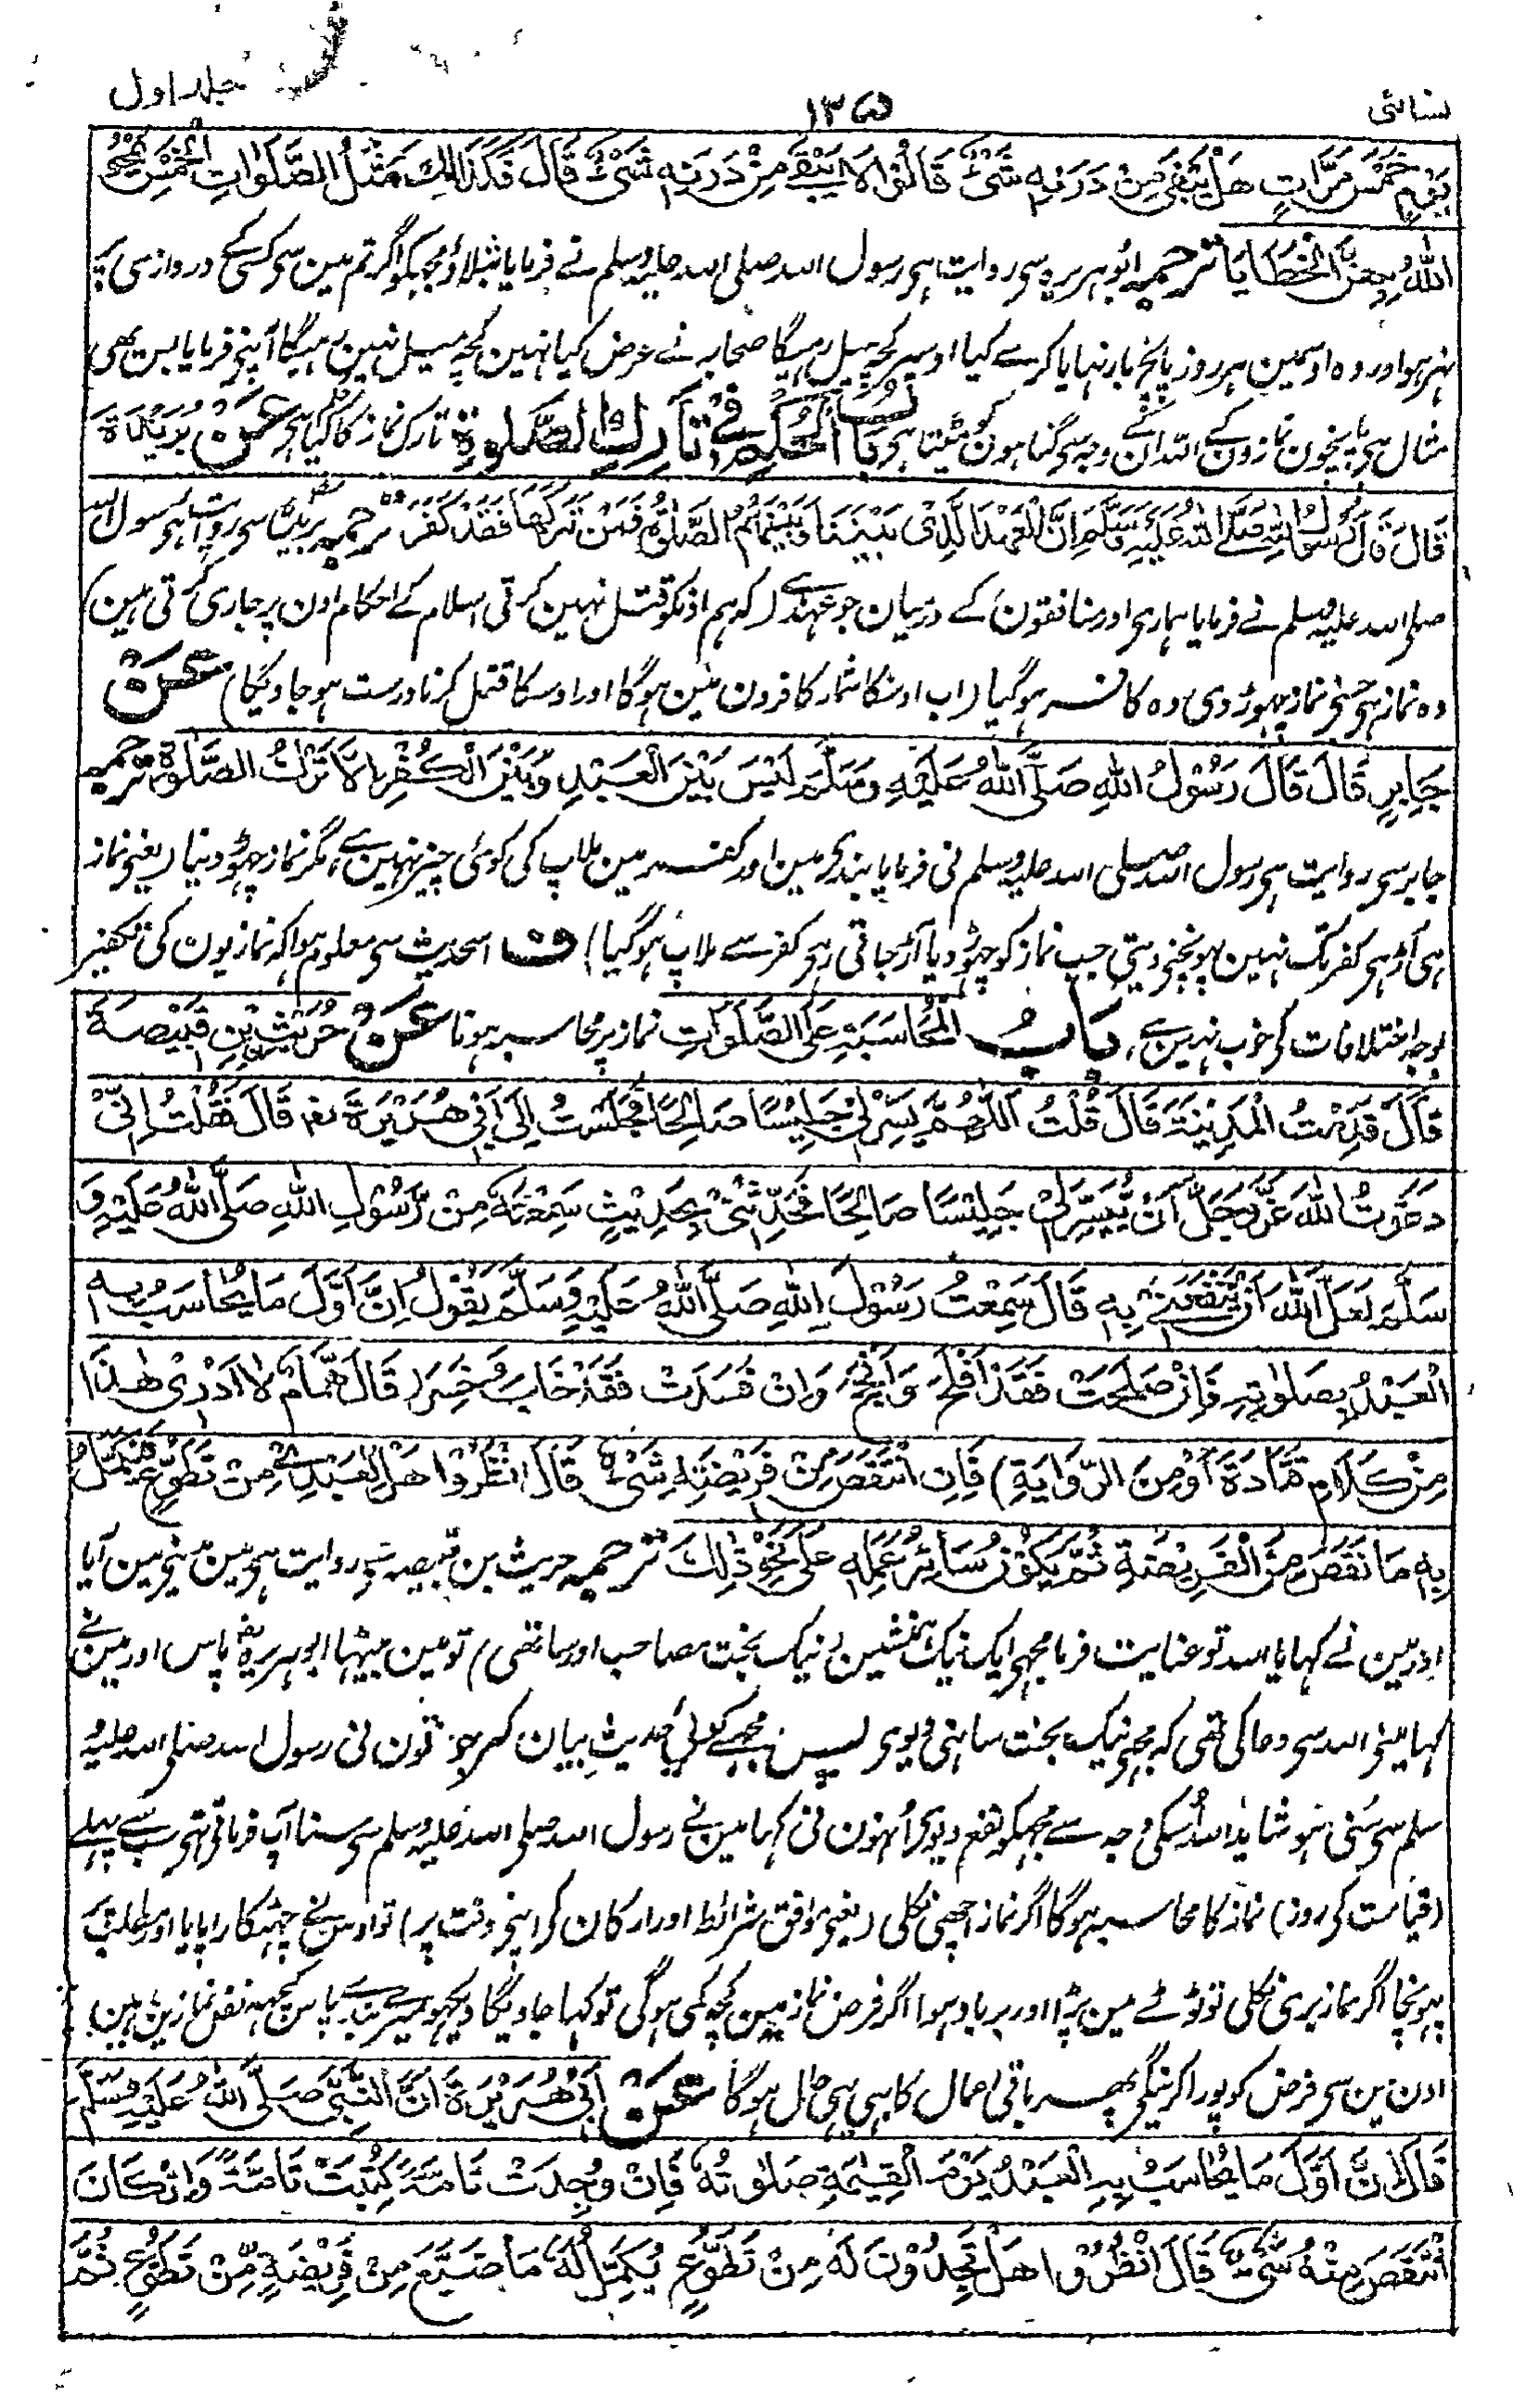 نسائی ١٣٥ جلد اول
يَوْمٍ خَمْسَ مَرَّاتٍ هَلْ يَبْقٰى مِنْ دَرَنِهٖ شَیْءٌ قَالُوْا لَا يَبْقٰى مِنْ دَرَنِهٖ شَیْءٌ قَالَ فَكَذٰلِكَ مَثَلُ الصَّلَوَاتِ الْخَمْسِ يَمْحُو
اللّٰهُ بِهِنَّ الْخَطَايَا ترجمہ ابوہریرہ سی روایت ہی رسول اللہ صلی اللہ علیہ وسلم نے فرمایا بتلاؤ مجہکو اگر تم مین سی کسی کے دروازی پر
نہر ہو اور وہ اوسمین ہر روز پانچ بار نہایا کرے کیا اوسپر کچہ میل رہیگا صحابہ نے عرض کیا نہین کچہ میل نہین رہیگا آپنی فرمایا بس یہی
مثال ہی پانچون نمازون کے اللہ ان کے وجہ سی گناہون کو میٹتا ہی بَابُ الْحُكْمِ فِیْ تَارِكِ الصَّلٰوةِ تارک نماز کا کیا حکم ہی عَنْ بُرَيْدَةَ
قَالَ قَالَ رَسُوْلُ اللّٰهِ صَلَّى اللّٰهُ عَلَيْهِ وَسَلَّمَ اِنَّ الْعَهْدَ الَّذِیْ بَيْنَنَا وَبَيْنَهُمُ الصَّلٰوةُ فَمَنْ تَرَكَهَا فَقَدْ كَفَرَ ترجمہ بریدہ سی روایت ہی رسول اللہ
صلی اللہ علیہ وسلم نے فرمایا ہماری اور منافقون کے درمیان جو عہد ہے (کہ ہم اونکو قتل نہین کرتی اسلام کے احکام اون پر جاری کرتی ہین)
وہ نماز ہی جسنی نماز چہوڑ دی وہ کافر ہو گیا (اب اوسکا شمار کافرون مین ہوگا اور اوسکا قتل کرنا درست ہو جاویگا) عَنْ
جَابِرٍ قَالَ قَالَ رَسُوْلُ اللّٰهِ صَلَّى اللّٰهُ عَلَيْهِ وَسَلَّمَ لَيْسَ بَيْنَ الْعَبْدِ وَبَيْنَ الْكُفْرِ اِلَّا تَرْكُ الصَّلٰوةِ ترجمہ
جابر سی روایت ہی رسول اللہ صلی اللہ علیہ وسلم نی فرمایا بندی مین اور کفر مین ملاپ کی کوئی چیز نہین ہے، مگر نماز چہوڑ دینا (یعنی نماز
ہی آڑ ہی کفر تک نہین پہونچنی دیتی جب نماز کو چہوڑ دیا آڑ جاتی رہی کفر سے ملاپ ہو گیا) ف اس حدیث سی معلوم ہوا کہ نمازیون کی تکفیر
بوجہ اختلافات کی خوب نہین ہے، بَابُ الْمُحَاسَبَةِ عَلَى الصَّلَوَاتِ نماز پر محاسبہ ہونا عَنْ حُرَيْثِ بْنِ قَبِيْصَةَ
قَالَ قَدِمْتُ الْمَدِيْنَةَ قَالَ قُلْتُ اَللّٰهُمَّ يَسِّرْ لِیْ جَلِيْسًا صَالِحًا فَجَلَسْتُ اِلٰى اَبِیْ هُرَيْرَةَ رض قَالَ فَقُلْتُ اِنِّیْ
دَعَوْتُ اللّٰهَ عَزَّ وَجَلَّ اَنْ يُّيَسِّرَ لِیْ جَلِيْسًا صَالِحًا فَحَدِّثْنِیْ بِحَدِيْثٍ سَمِعْتَهٗ مِنْ رَّسُوْلِ اللّٰهِ صَلَّى اللّٰهُ عَلَيْهِ وَ
سَلَّمَ لَعَلَّ اللّٰهَ اَنْ يَّنْفَعَنِیْ بِهٖ قَالَ سَمِعْتُ رَسُوْلَ اللّٰهِ صَلَّى اللّٰهُ عَلَيْهِ وَسَلَّمَ يَقُوْلُ اِنَّ اَوَّلَ مَا يُحَاسَبُ بِهِ
الْعَبْدُ بِصَلٰوتِهٖ فَاِنْ صَلُحَتْ فَقَدْ اَفْلَحَ وَاَنْجَحَ وَاِنْ فَسَدَتْ فَقَدْ خَابَ وَخَسِرَ (قَالَ هَمَّامٌ لَا اَدْرِیْ هٰذَا
مِنْ كَلَامِ قَتَادَةَ اَوْ مِنَ الرِّوَايَةِ) فَاِنِ انْتَقَصَ مِنْ فَرِيْضَتِهٖ شَیْءٌ قَالَ انْظُرُوْا هَلْ لِعَبْدِیْ مِنْ تَطَوُّعٍ فَيُكَمَّلُ
بِهٖ مَا نَقَصَ مِنَ الْفَرِيْضَةِ ثُمَّ يَكُوْنُ سَائِرُ عَمَلِهٖ عَلٰى نَحْوِ ذٰلِكَ ترجمہ حریث بن قبیصہ سی روایت ہی مین مدینی مین آیا
اور مین نے کہا یا اللہ تو عنایت فرما مجہی ایک نیک ہمنشین (نیک بخت مصاحب اور ساتھی) تو مین بیٹہا ابوہریرہ پاس اور مین نے
کہا مینی اللہ سی دعا کی تھی کہ مجہی نیک بخت ساتہی دیوی پس مجہسے کوئی حدیث بیان کر جو تون نی رسول اللہ صلی اللہ علیہ و
سلم سی سنی ہو شاید اللہ اسکی وجہ سے مجہکو نفع دیوی اُنہون نی کہا مین نے رسول اللہ صلی اللہ علیہ وسلم سی سنا آپ فرماتی تہی سب سے پہلے
(قیامت کی روز) نماز کا محاسبہ ہوگا اگر نماز اچھی نکلی (یعنی موافق شرائط اور ارکان کی اپنی وقت پر) تو اوس نے چہٹکارا پایا اور مطلب کو
پہونچا اگر نماز بری نکلی تو ٹوٹے مین پڑا اور برباد ہوا اگر فرض نماز مین کچہ کمی ہوگی تو کہا جاویگا دیکہو میرے بندے پاس کچہہ نفل نمازین ہین
اون مین سی فرض کو پورا کرینگی پھر باقی اعمال کا بہی یہی حال ہوگا عَنْ اَبِیْ هُرَيْرَةَ اَنَّ النَّبِیَّ صَلَّى اللّٰهُ عَلَيْهِ وَسَلَّمَ
قَالَ اِنَّ اَوَّلَ مَا يُحَاسَبُ بِهِ الْعَبْدُ يَوْمَ الْقِيٰمَةِ صَلٰوتُهٗ فَاِنْ وُجِدَتْ تَامَّةً كُتِبَتْ تَامَّةً وَاِنْ كَانَ
انْتُقِصَ مِنْهُ شَیْءٌ قَالَ انْظُرُوْا هَلْ تَجِدُوْنَ لَهٗ مِنْ تَطَوُّعٍ يُكَمِّلُ لَهٗ مَا ضَيَّعَ مِنْ فَرِيْضَةٍ مِّنْ تَطَوُّعِهٖ ثُمَّ